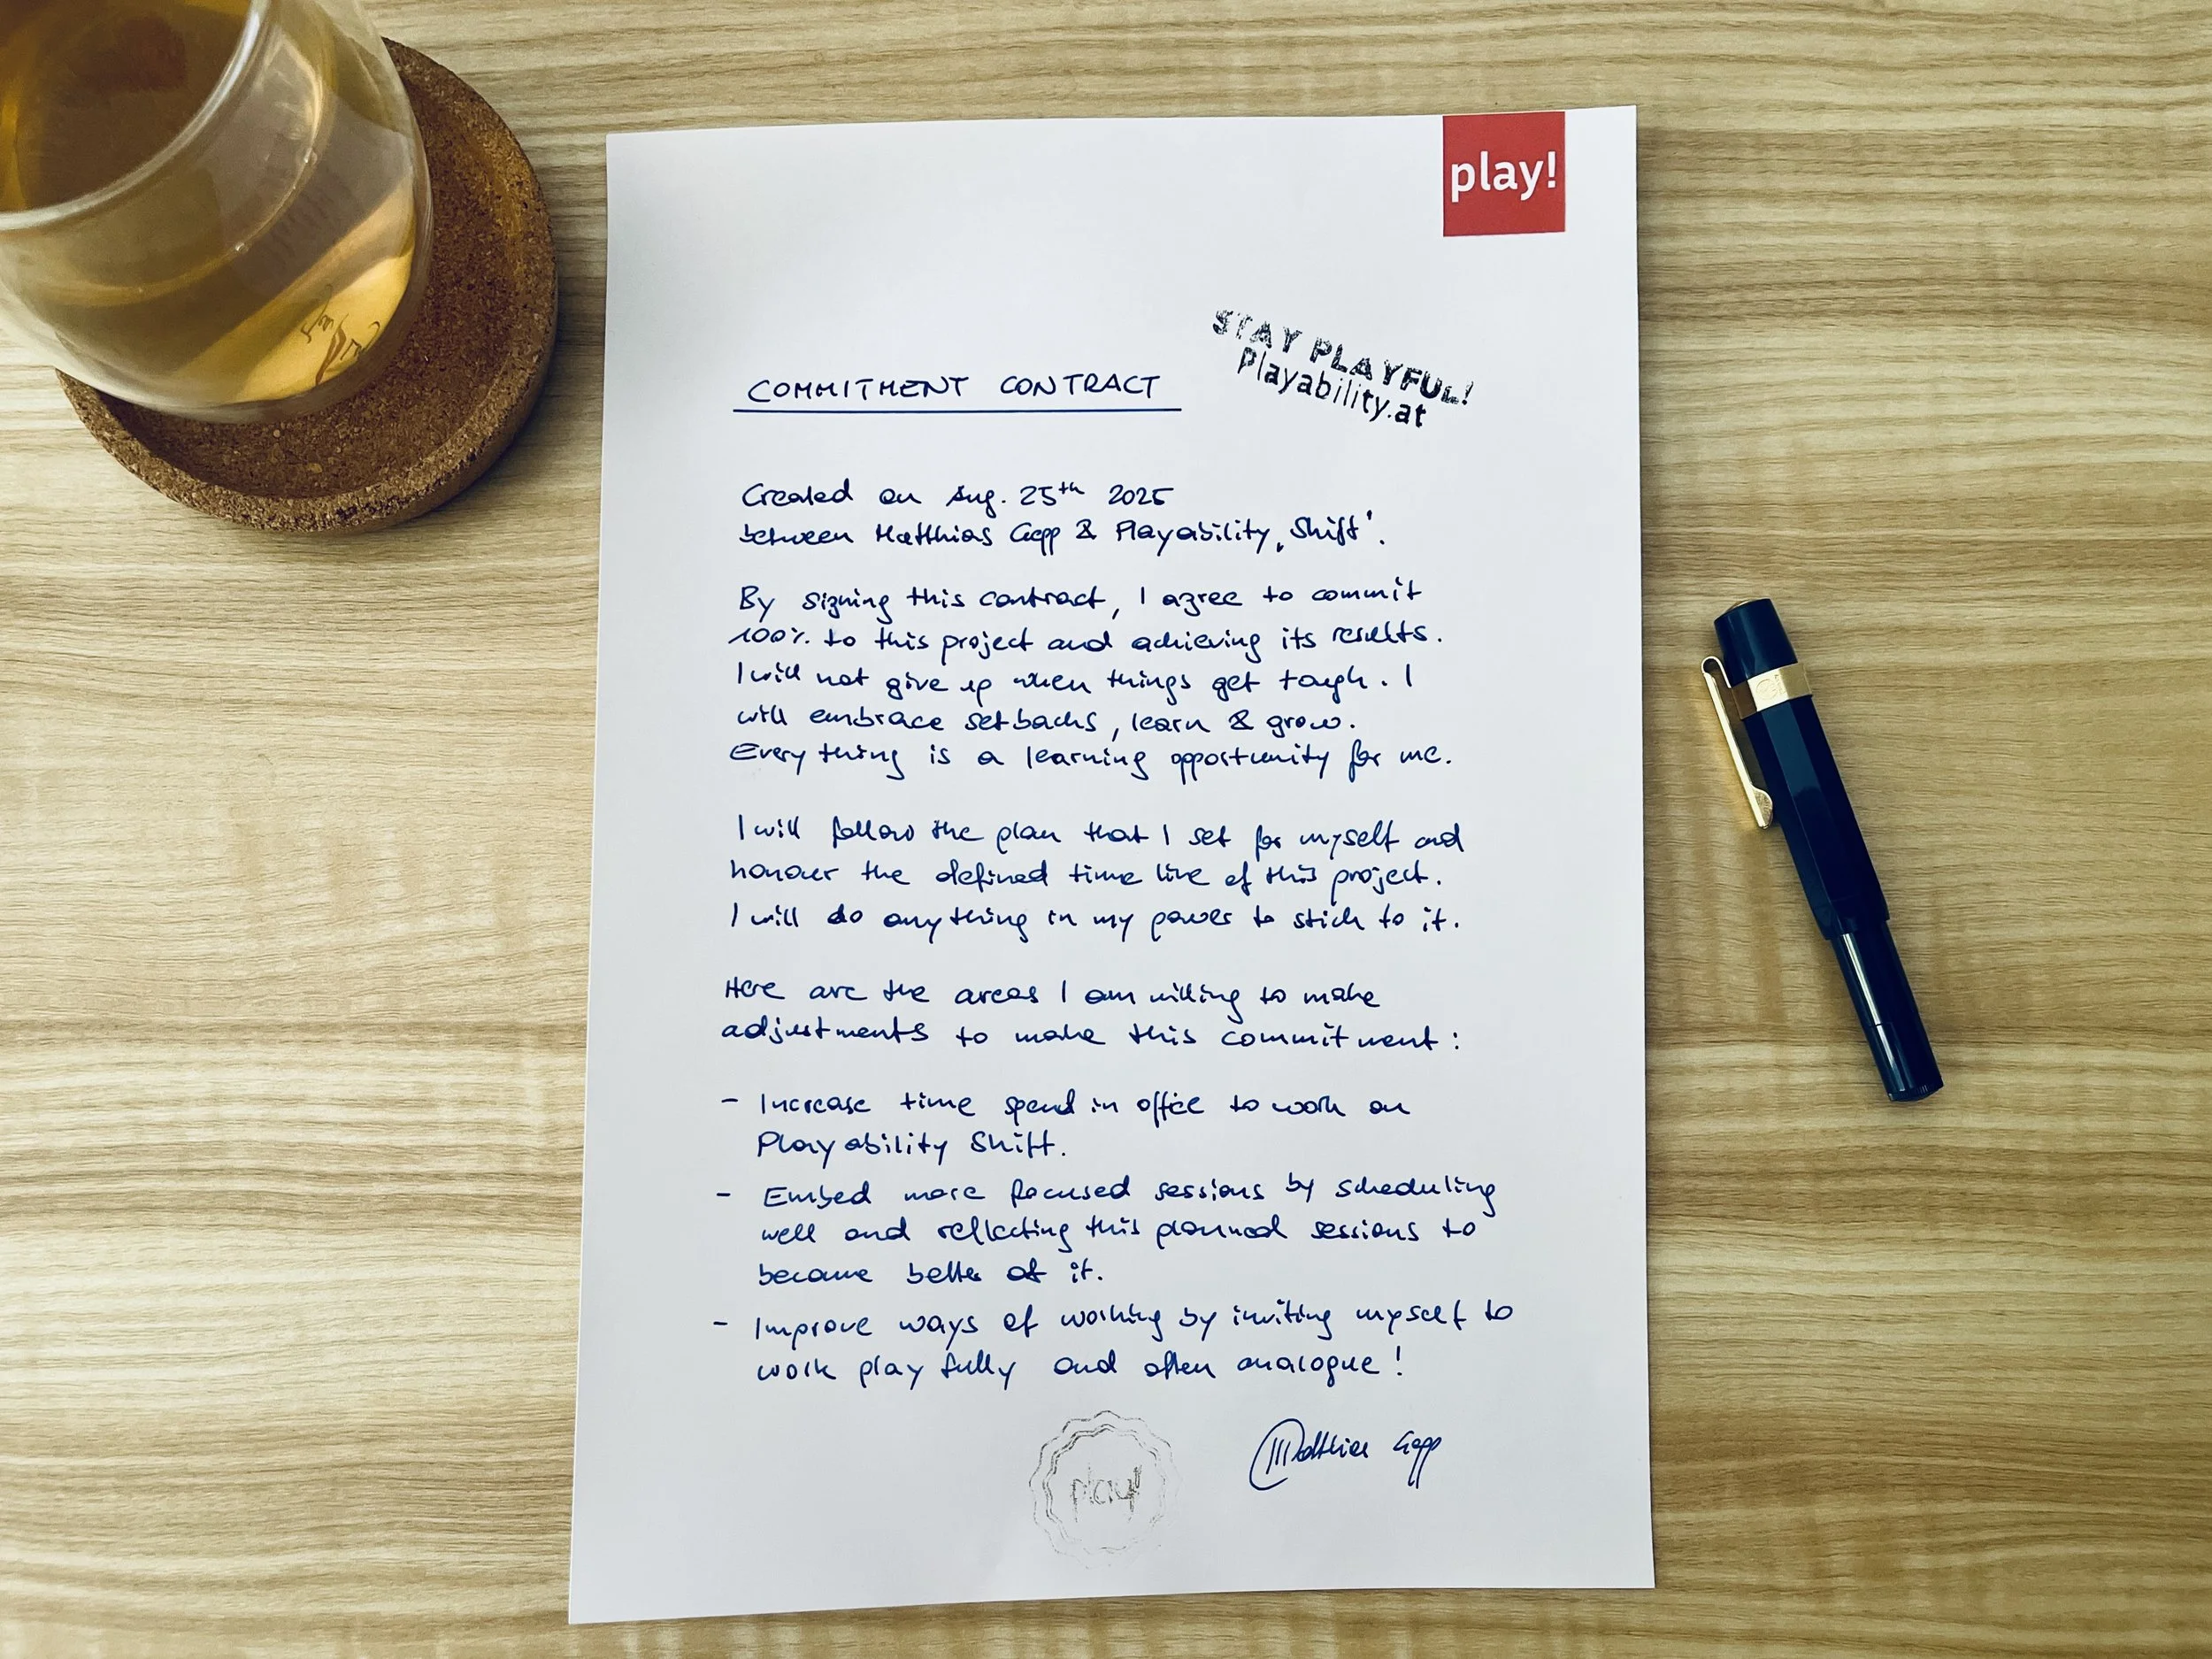 play!
STAY PLAYFUL!
Playability.at
COMMITMENT CONTRACT
Created on Aug. 25th 2025
between Matthias Gepp & Playability ‚Shift'.
By signing this contract, I agree to commit
100% to this project and achieving its results.
I will not give up when things get tough. I
will embrace setbacks, learn & grow.
Everything is a learning opportunity for me.
I will follow the plan that I set for myself and
honour the defined time line of this project.
I will do anything in my power to stick to it.
Here are the areas I am willing to make
adjustments to make this commitment:
- Increase time spend in office to work on
Playability Shift.
- Embed more focused sessions by scheduling
well and reflecting this planned sessions to
become better at it.
- Improve ways of working by inviting myself to
work playfully and often analogue!
play!
Matthias Gepp